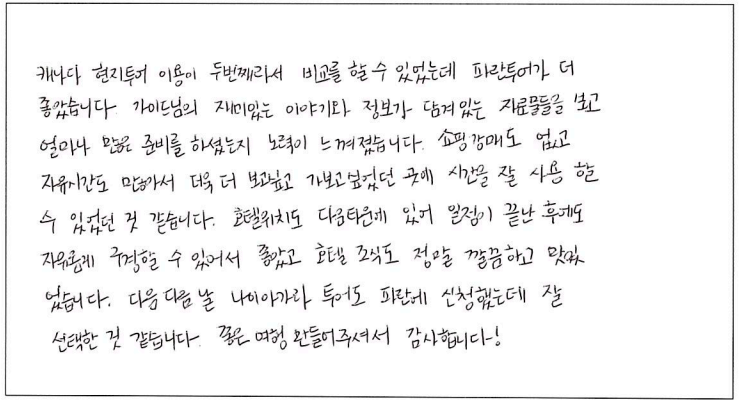 캐나다 현지투어 이용이 두번째라서 비교를 할 수 있었는데 파란투어가 더
좋았습니다 가이드님의 재미있는 이야기와 정보가 담겨있는 자료물들을 보고
얼마나 많은 준비를 하셨는지 노력이 느껴졌습니다. 쇼핑강매도 없고
자유시간도 많아서 더욱 더 보고싶고 가보고싶었던 곳에 시간을 잘 사용 할
수 있었던 것 같습니다. 호텔위치도 다운타운에 있어 일정이 끝난 후에도
자유롭게 구경할 수 있어서 좋았고 호텔 조식도 정말 깔끔하고 맛있
었습니다. 다음 다음 날 나이아가라 투어도 파란에 신청했는데 잘
선택한 것 같습니다. 좋은 여행 만들어주셔서 감사합니다~!